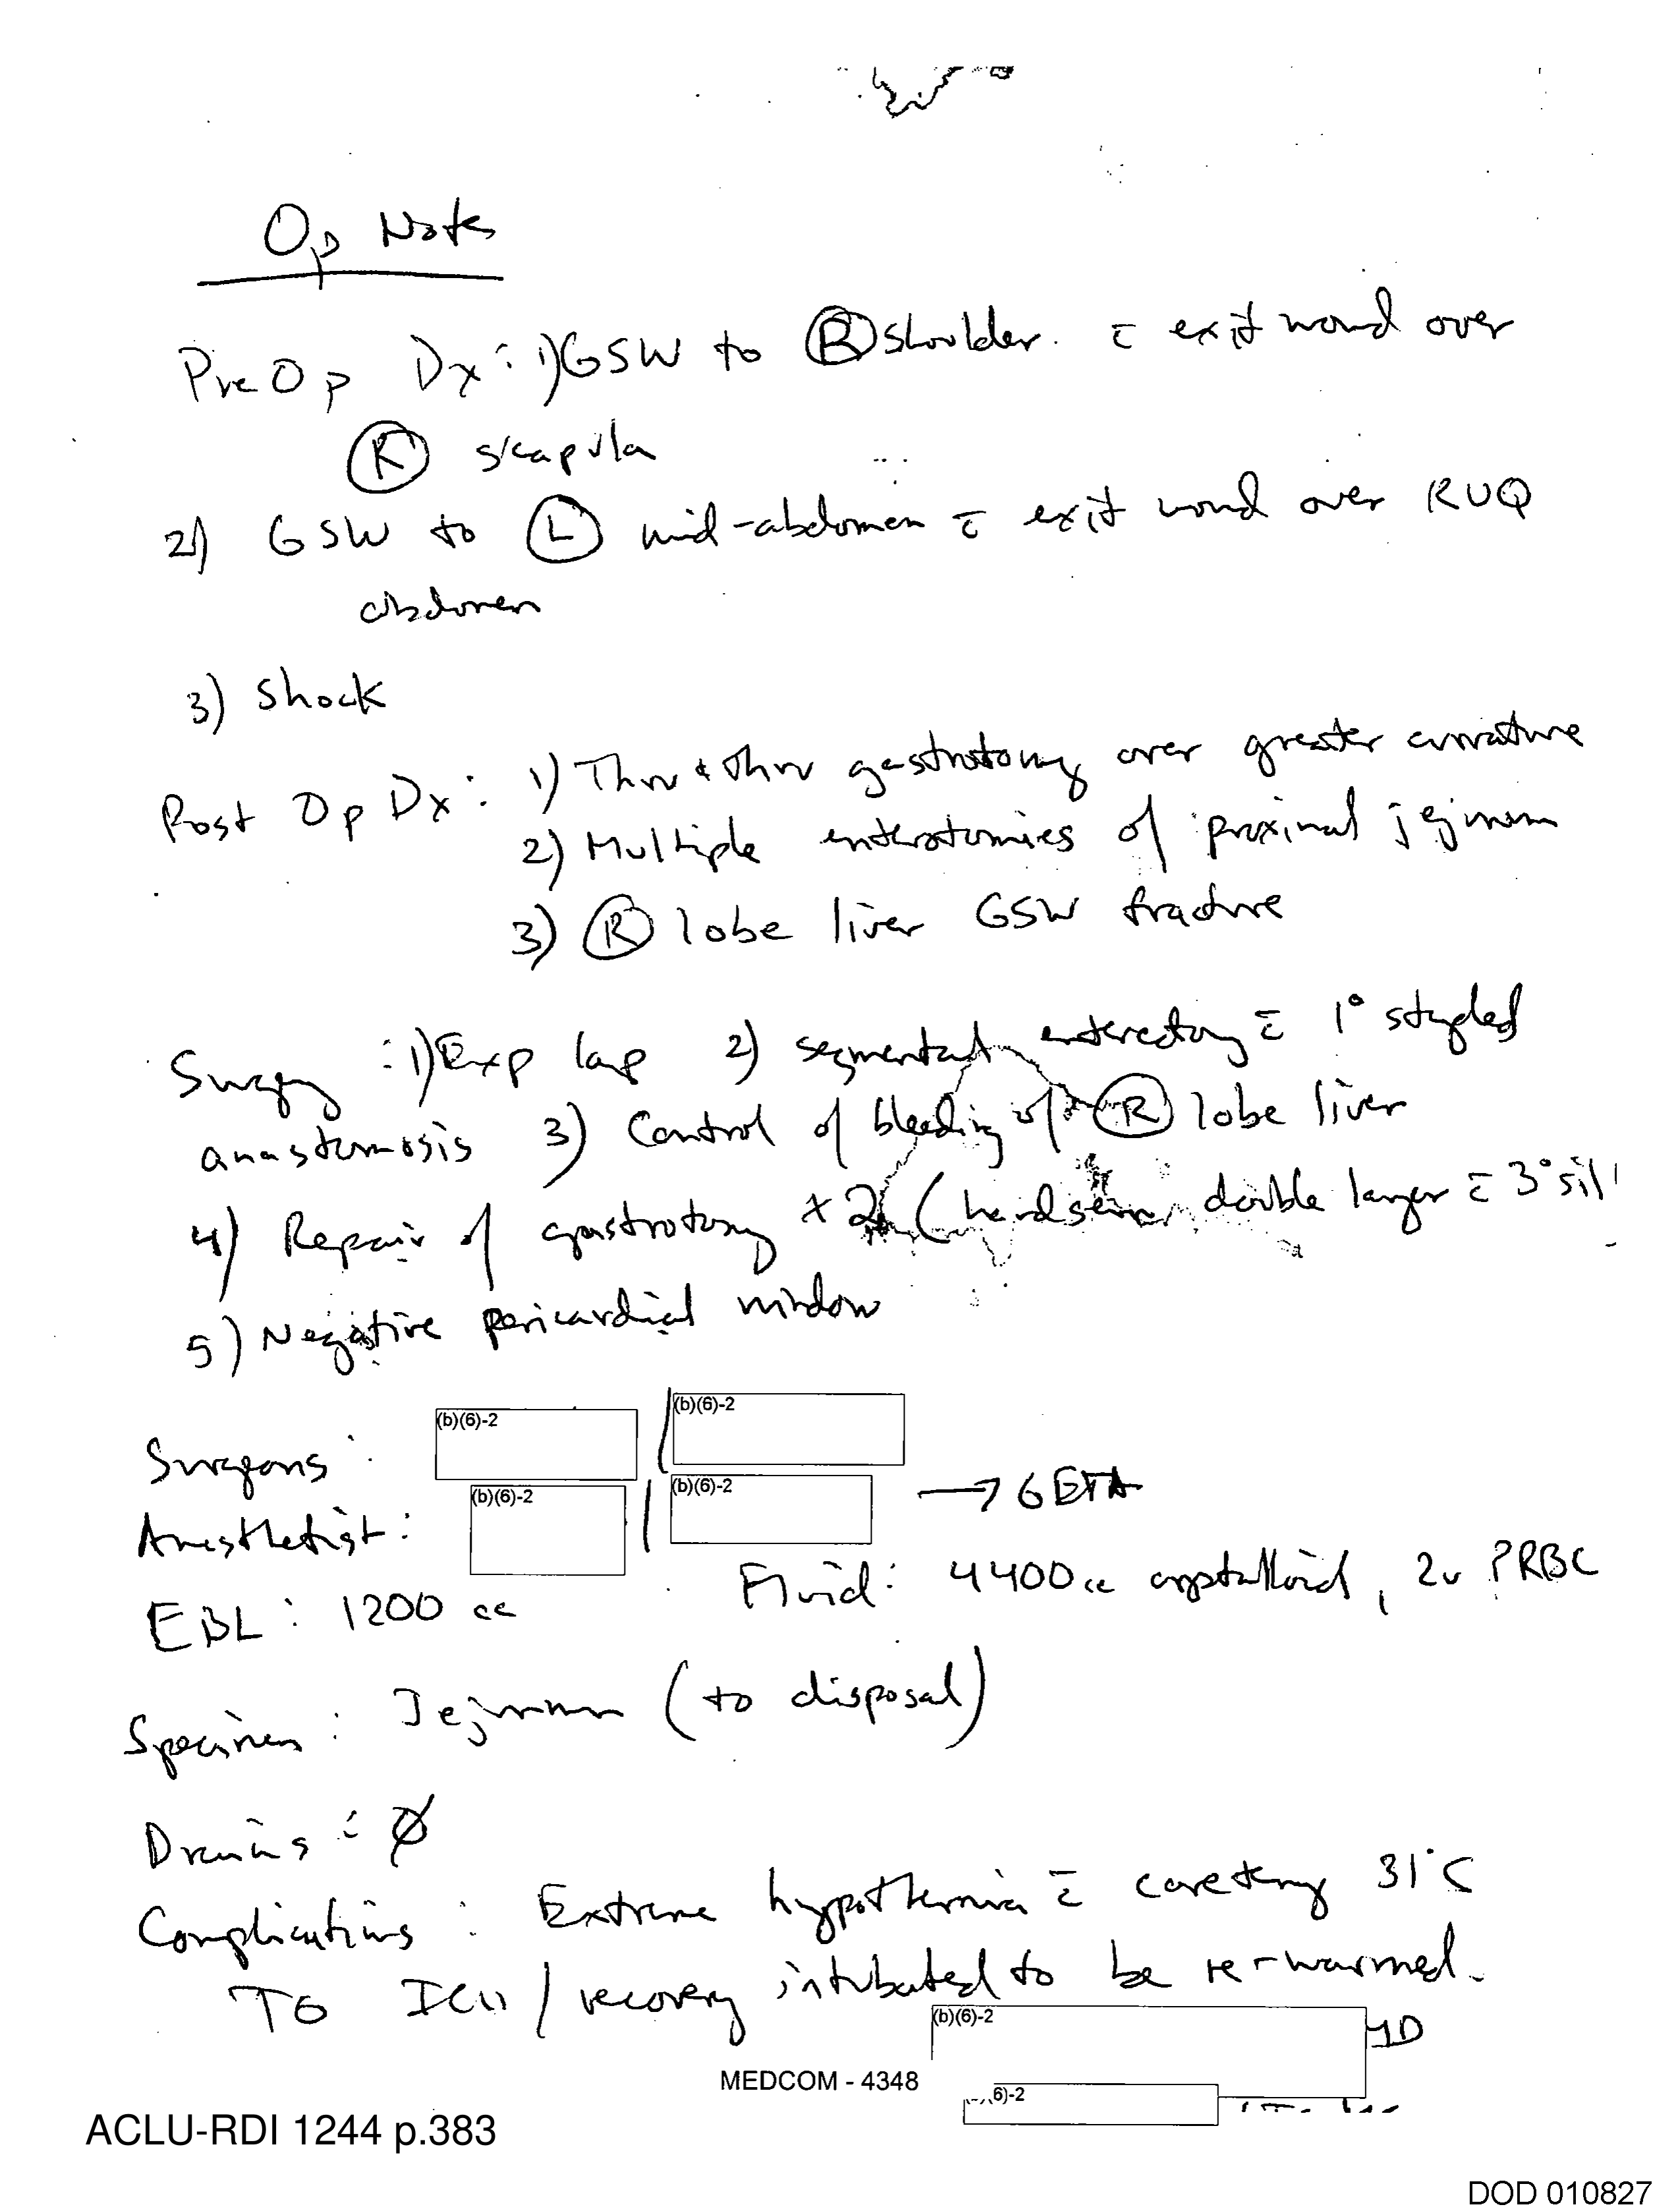 Op Note
Pre Op Dx: 1) GSW to Ⓡ shoulder. c̄ exit wound over
Ⓡ scapula
2) GSW to Ⓛ mid-abdomen c̄ exit wound over RUQ
abdomen
3) Shock
Post Op Dx: 1) Thru & thru gastrotomy over greater curvature
2) Multiple enterotomies of proximal jejunum
3) Ⓡ lobe liver GSW fracture
Surgery: 1) Exp lap 2) segmental enterectomy c̄ 1° stapled
anastomosis 3) Control of bleeding of Ⓡ lobe liver
4) Repair of gastrotomy x 2 (handsewn double layer c̄ 3°
5) Negative pericardial window
Surgeons: (b)(6)-2 / (b)(6)-2
Anesthetist: (b)(6)-2 / (b)(6)-2 → GETA
EBL: 1200 cc Fluid: 4400 cc crystalloid, 2u PRBC
Specimen: Jejunum (to disposal)
Drains: ∅
Complications: Extreme hypothermia c̄ core temp 31°C
To ICU / recovery intubated to be re-warmed.
(b)(6)-2 MD
MEDCOM - 4348
6)-2
ACLU-RDI 1244 p.383
DOD 010827